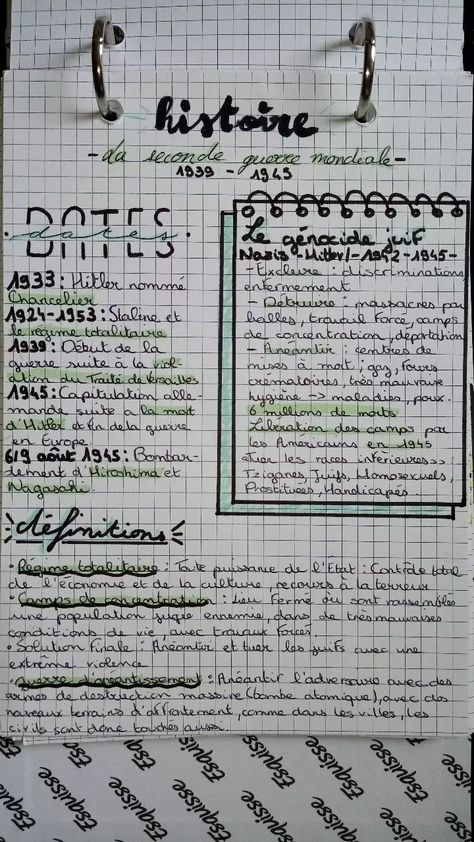 histoire
- da seconde guerre mondiale -
1939 - 1945
DATES
dates
1933 : Hitler nommé
Chancelier
1924-1953 : Staline et
le régime totalitaire
1939 : Début de la
guerre suite à la viol-
ation du Traité de Versailles
1945 : Capitulation alle-
mande suite a la mort
d'Hitler et fin de la guerre
en Europe.
6/9 août 1945 : Bombar-
dement d'Hiroshima et
Nagasaki.
Le génocide juif
Nazis - Hitler/-1942-1945-
- Exclure : discriminations
enfermement
- Détruire : massacres par
balles, travail forcé, camps
de concentration, déportation
- Anéantir : centres de
mises à mort ; gaz, fours
crématoires, très mauvaise
hygiène -> maladies, poux.
6 millions de morts
Libération des camps par
les Américains en 1945
«Tuer les races inférieures>>
Tziganes, Juifs, Homosexuels,
Prostituées, Handicapés.
définitions
• Régime totalitaire : Toute puissance de l'État : Contrôle total
de l'économie et de la culture, recours à la terreur
• Camps de concentration : Lieu fermé où sont rassemblés
une population jugée ennemie, dans de très mauvaises
conditions de vie, avec travaux forcés.
• Solution Finale : Anéantir et tuer les juifs avec une
extrême violence
• guerre d'anéantissement : Anéantir l'adversaire avec des
armes de destruction massive (bombe atomique), avec des
nouveaux terrains d'affrontement, comme dans les villes, les
civils sont donc touchés aussi.
Esquisse Esquisse Esquisse Esquisse Esquisse
Esquisse Esquisse Esquisse Esquisse